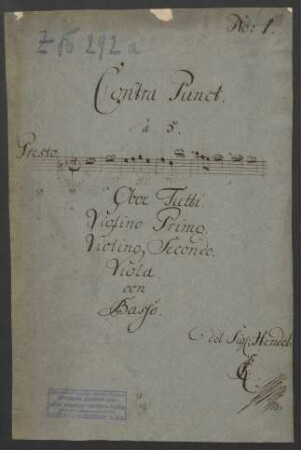 No: 1.
Z 85 292a
Contra Punct.
à 5.
Presto
Oboe Tutti.
Violino Primo.
Violino, Secondo.
Viola
con
Basso.
del Sigl: Hendel.